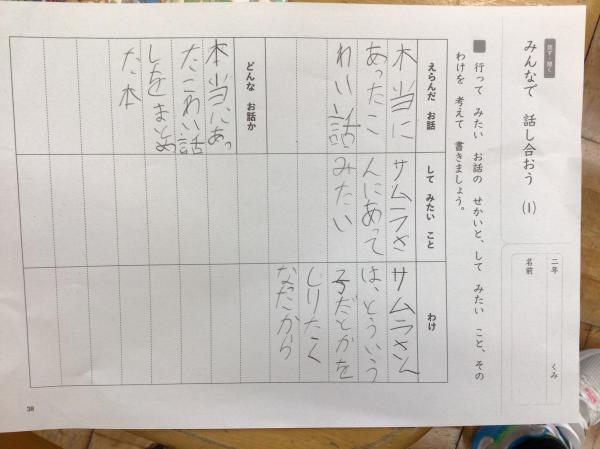 話す・聞く
みんなで 話し合おう (1)
二年 くみ
名前
行って みたい お話の せかいと、して みたい こと、その
わけを 考えて 書きましょう。
えらんだ お話
本当に
あったこ
わい話
どんな お話か
本当にあっ
たこわい話
しをまとめ
た本
して みたい こと
サムラさ
んにあって
みたい
わけ
サムラさん
は、とういう
子だとかを
しりたく
なったから
38